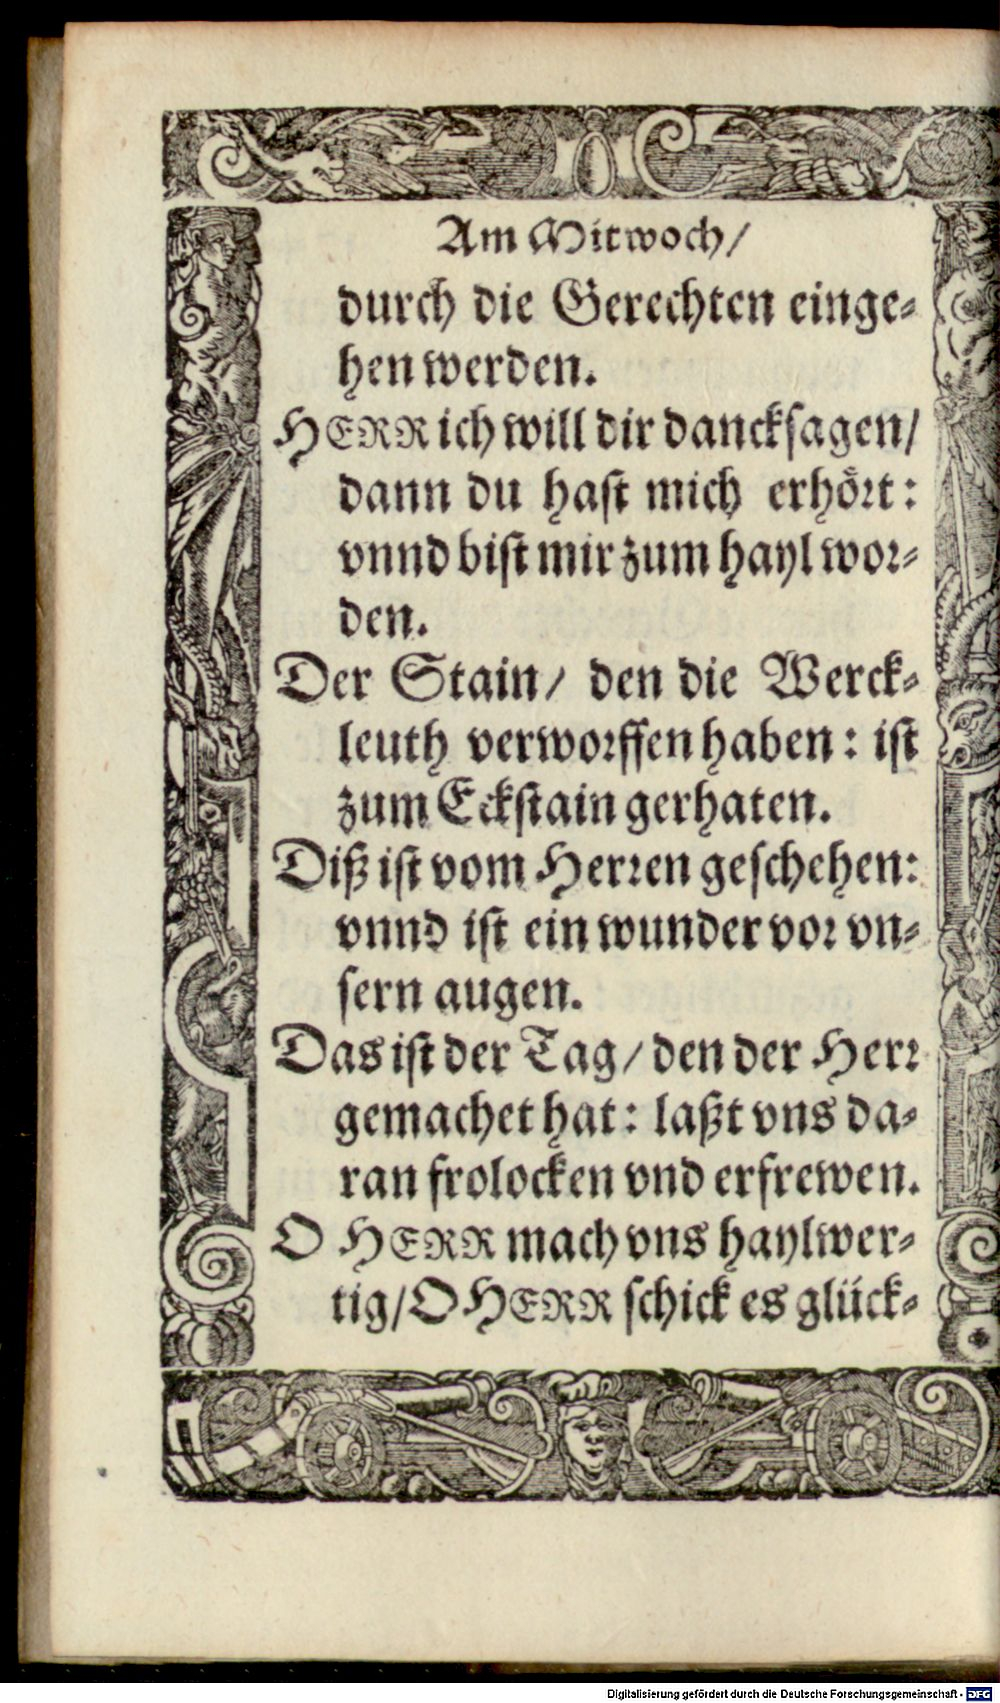 Am Mitwoch/
durch die Gerechten einge⸗
hen werden.
HERR ich will dir dancksagen/
dann du hast mich erhört:
vnnd bist mir zum hayl wor⸗
den.
Der Stain/ den die Werck⸗
leuth verworffen haben: ist
zum Eckstain gerhaten.
Diß ist vom Herren geschehen:
vnnd ist ein wunder vor vn⸗
sern augen.
Das ist der Tag/ den der Herr
gemachet hat: laßt vns da⸗
ran frolocken vnd erfrewen.
O HERR mach vns haylwer⸗
tig/ O HERR schick es glück⸗
Digitalisierung gefördert durch die Deutsche Forschungsgemeinschaft - DFG